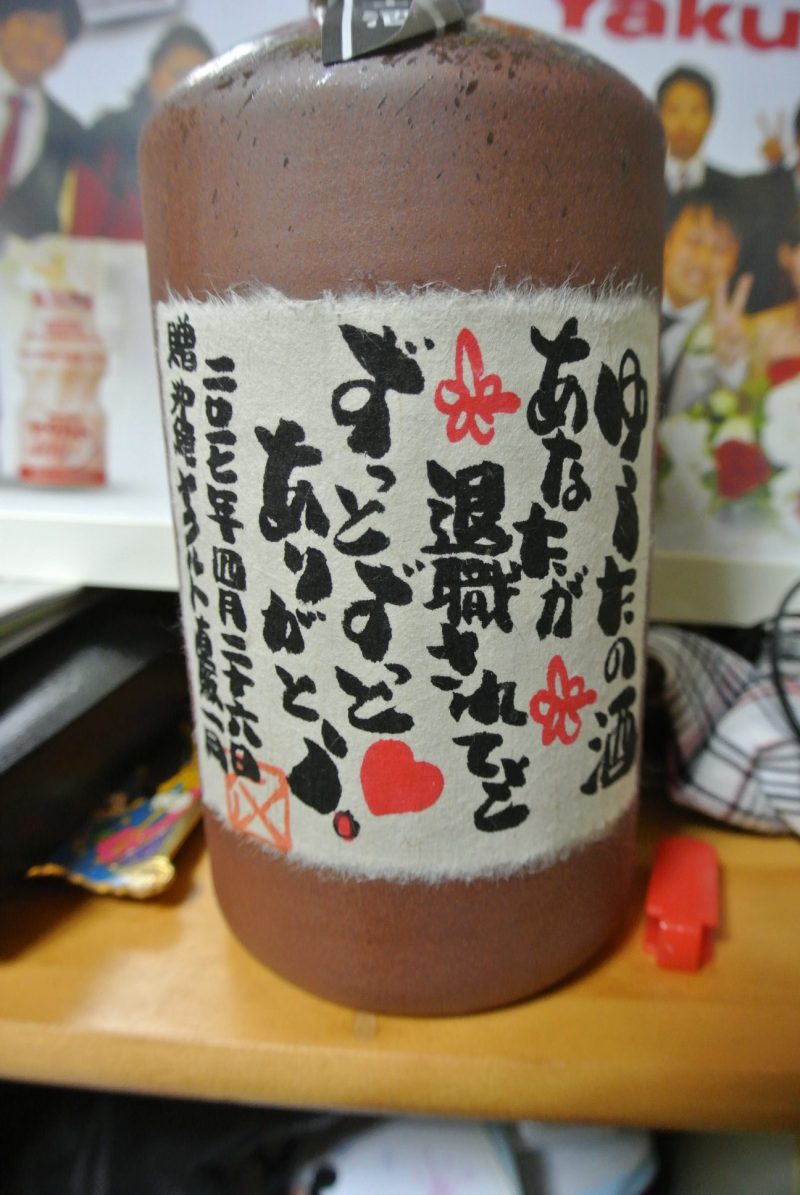 Yaku
ゆうたの酒
あなたが
退職されても
ずっとずっと
ありがとう。
二〇一七年四月二十六日
贈 沖縄ヤクルト直販一同